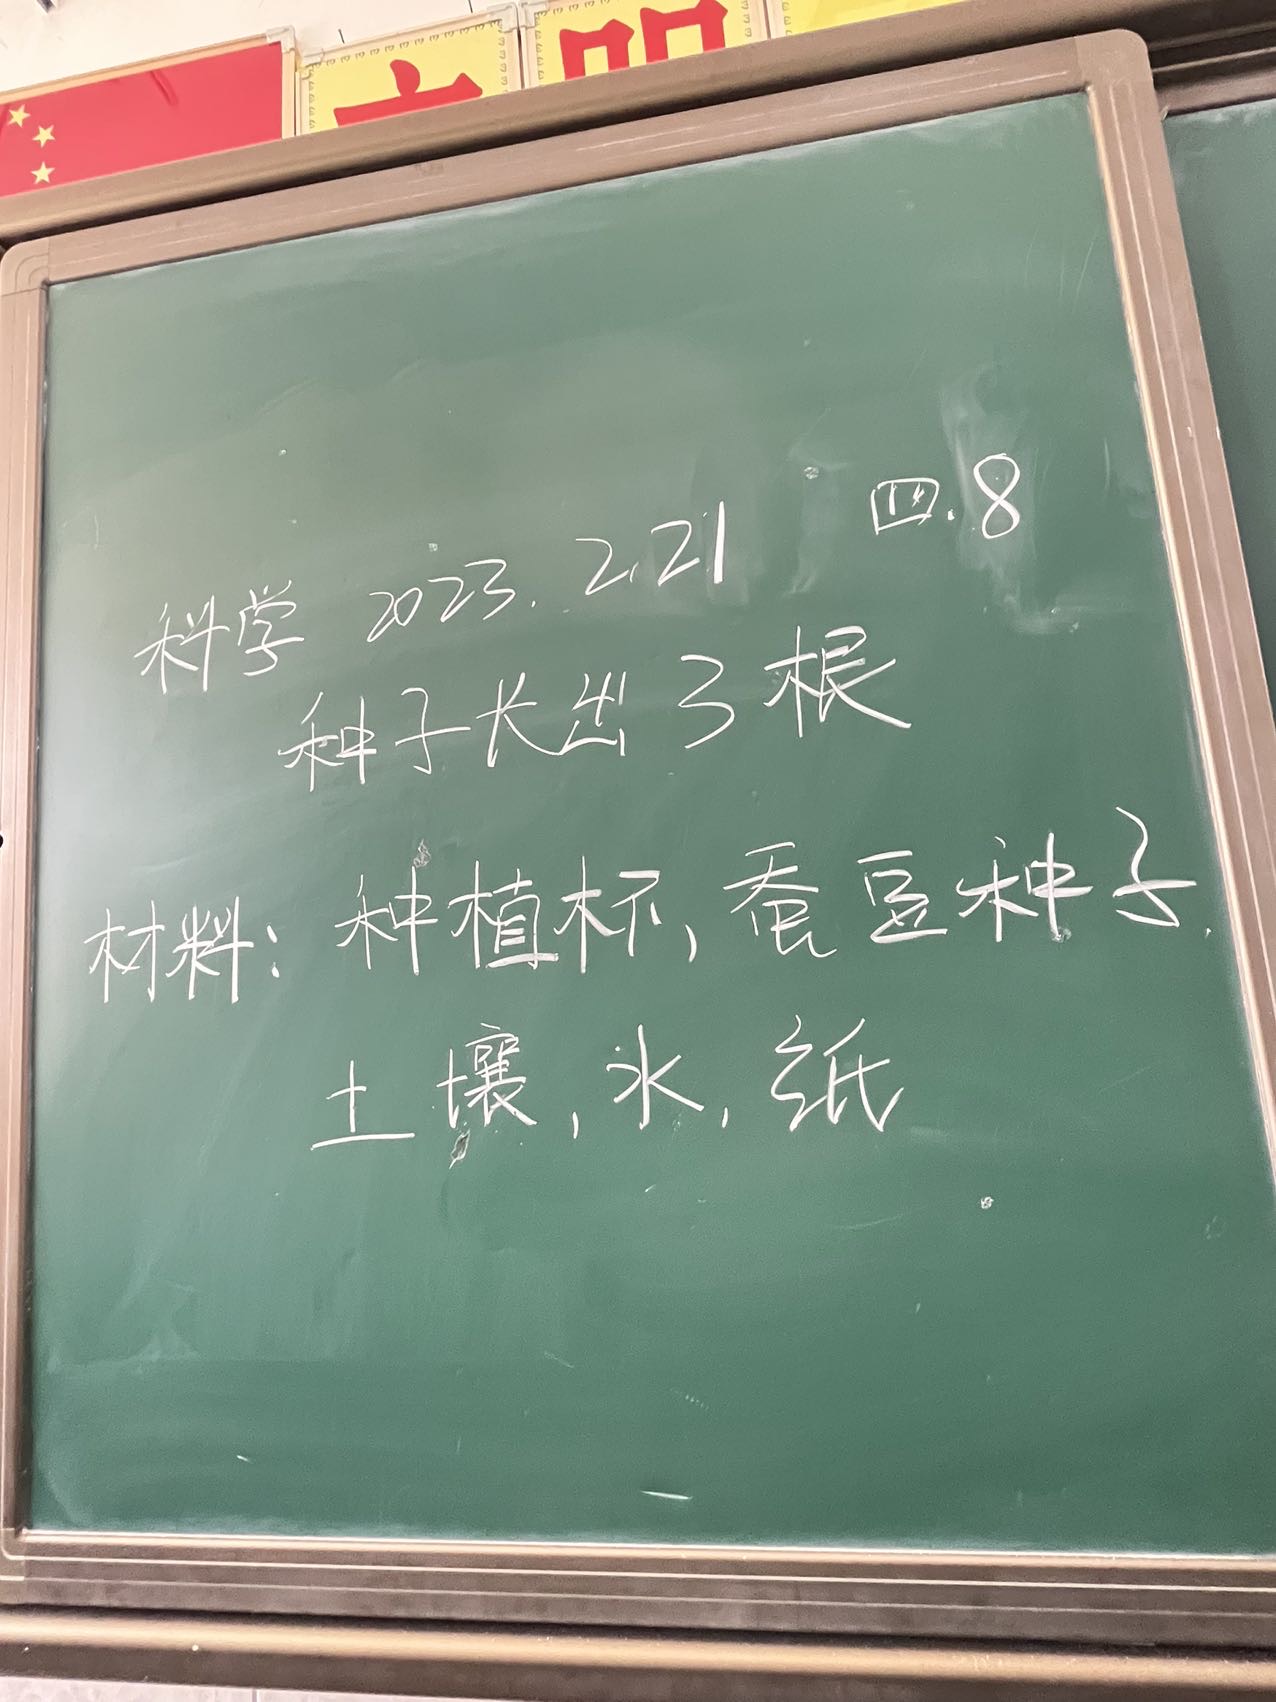 科学 2023.2.21 四.8
种子长出了根
材料：种植杯，蚕豆种子，
土壤，水，纸